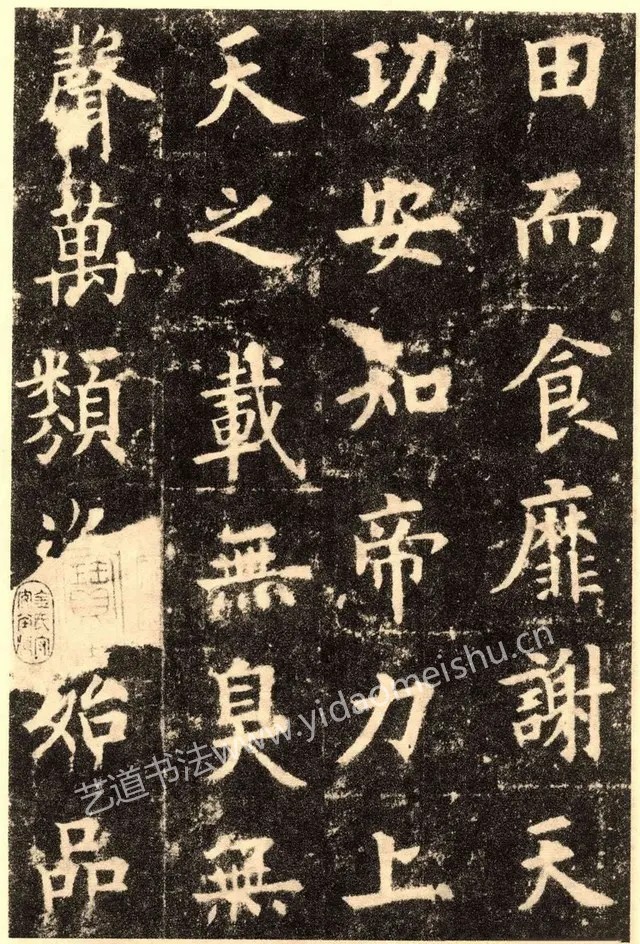 田而食靡謝天
功安知帝力上
天之載無臭無
聲萬類始品
艺道书法www.yidaomeishu.cn